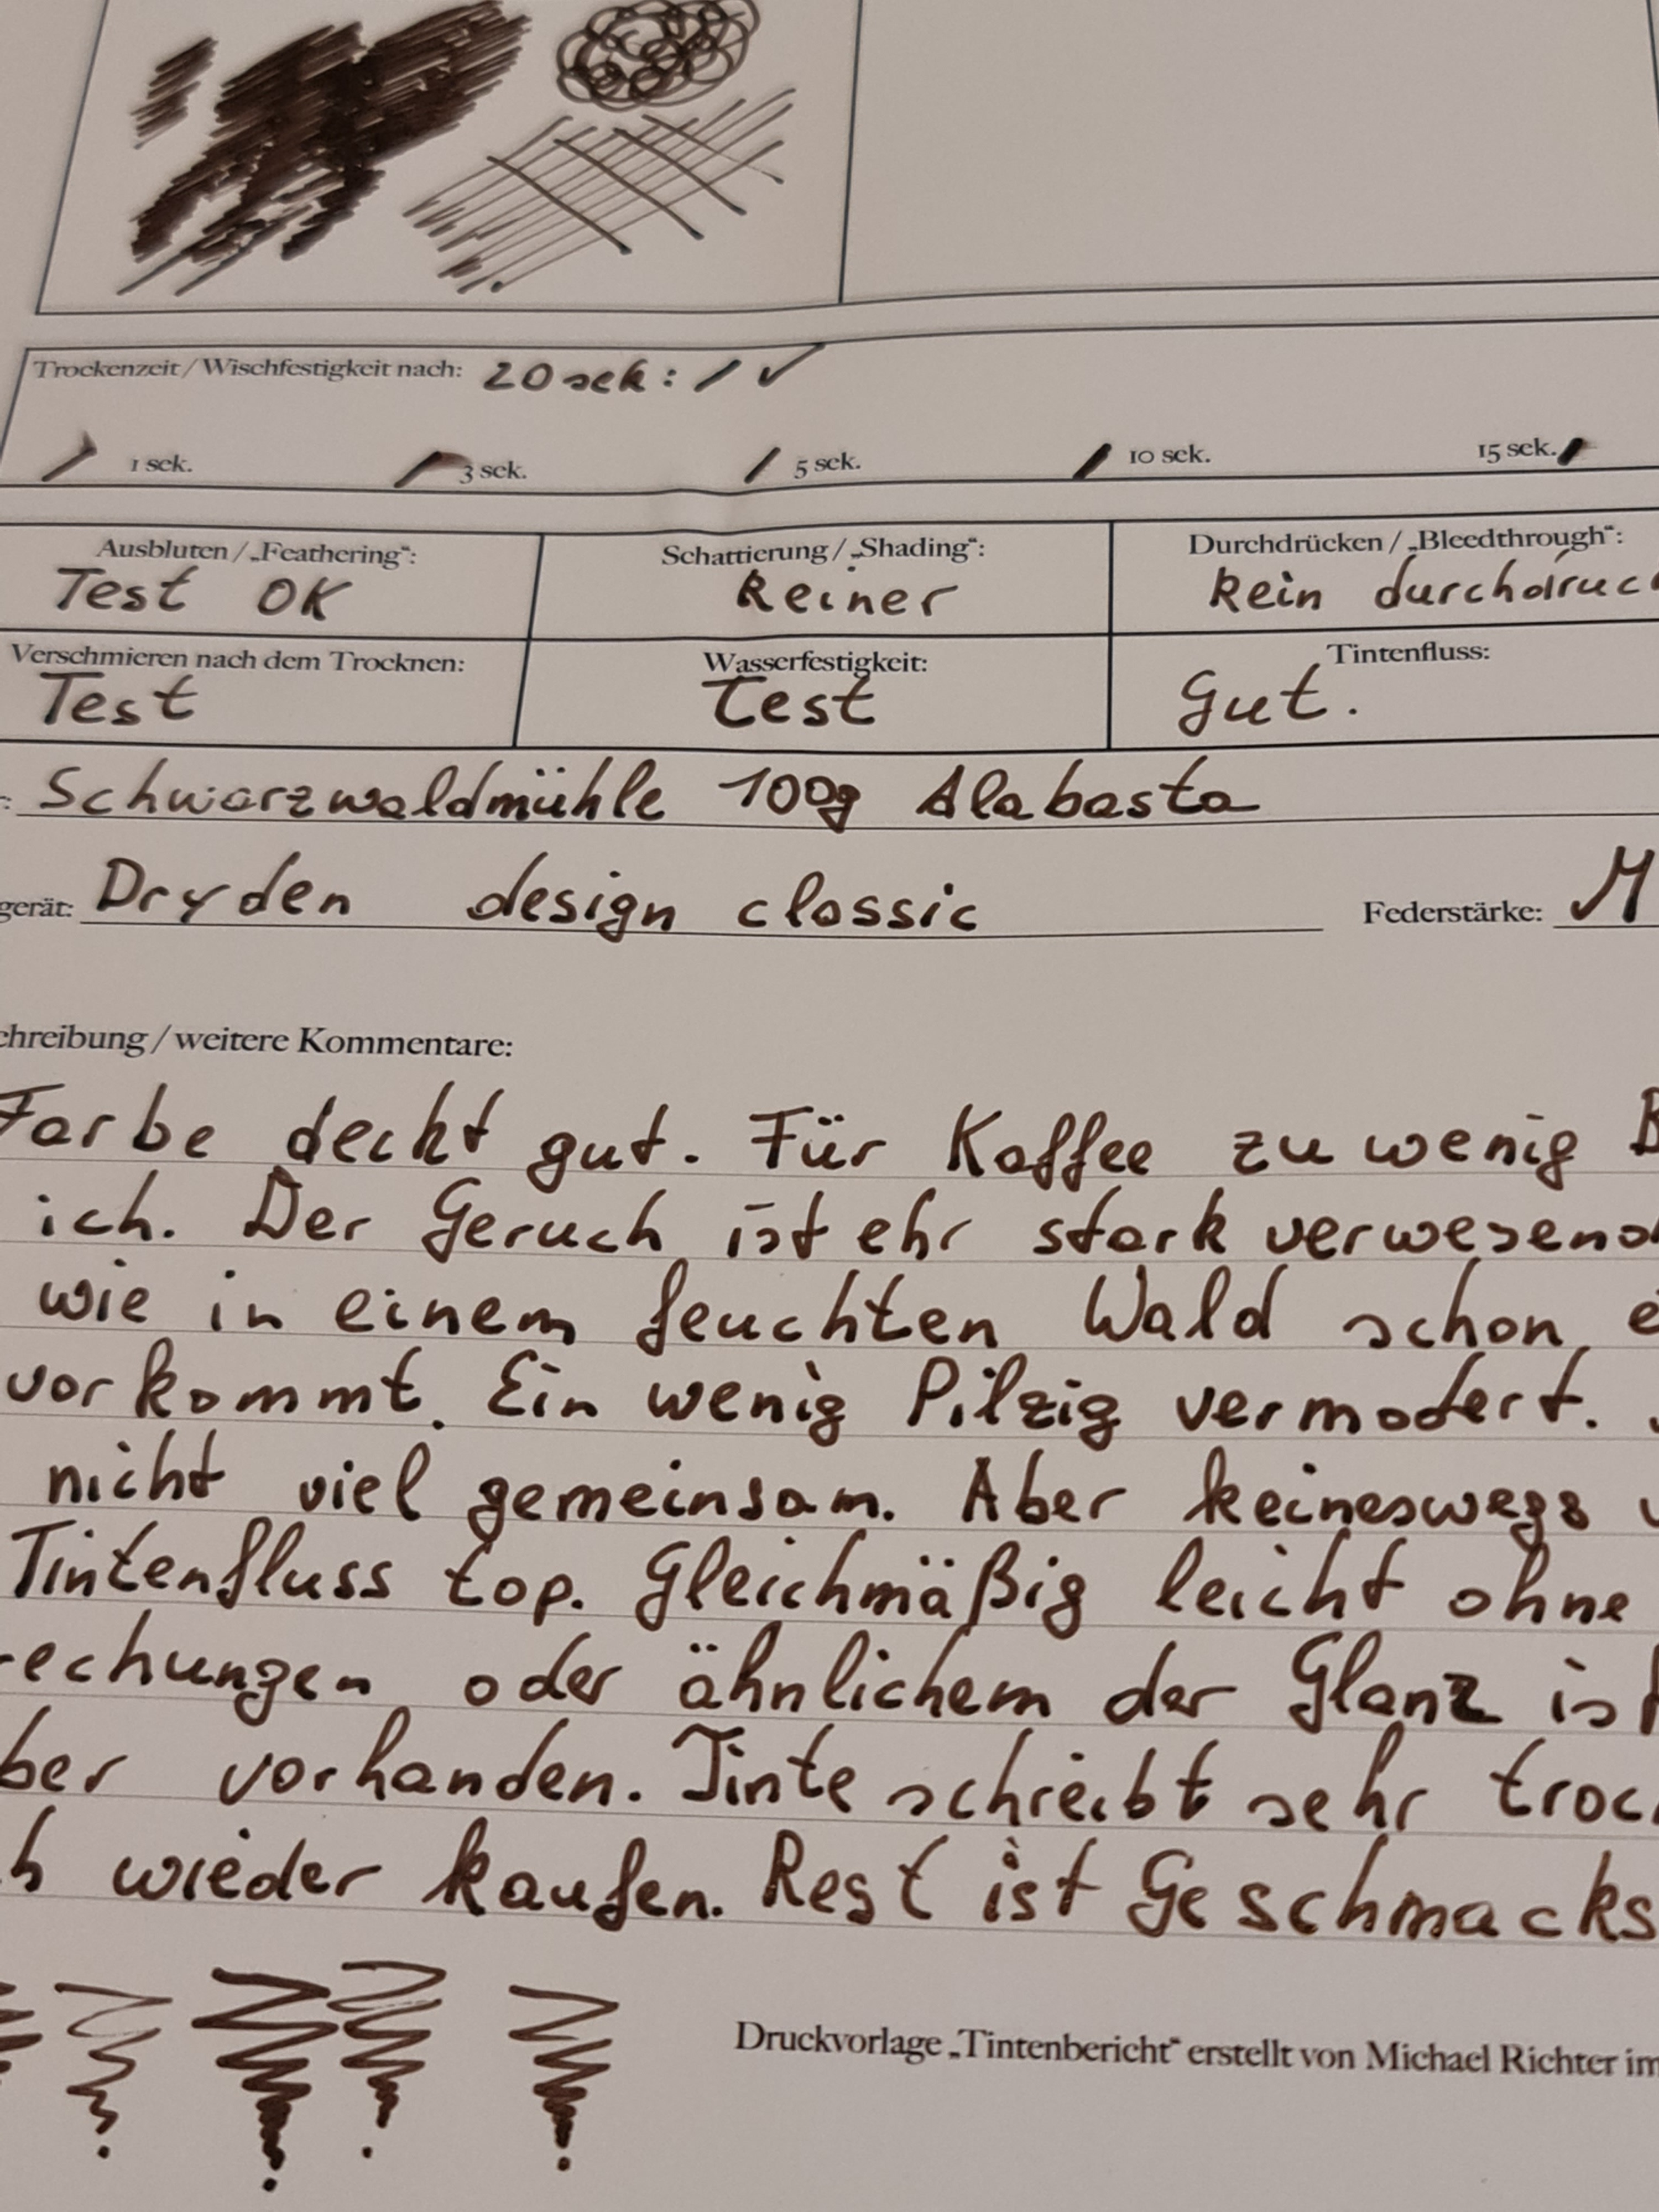 Trockenzeit / Wischfestigkeit nach: 20 sek: / ✓
1 sek. 3 sek. 5 sek. 10 sek. 15 sek.
Ausbluten / „Feathering“: Schattierung / „Shading“: Durchdrücken / „Bleedthrough“:
Test OK Keiner Kein durchdruc
Verschmieren nach dem Trocknen: Wasserfestigkeit: Tintenfluss:
Test Test Gut.
Schwarzwaldmühle 100g Alabasta
gerät: Dryden design classic Federstärke: M
chreibung / weitere Kommentare:
Farbe deckt gut. Für Kaffee zu wenig B
ich. Der Geruch ist ehr stark verwesend
wie in einem feuchten Wald schon e
vorkommt. Ein wenig Pilzig vermodert.
nicht viel gemeinsam. Aber keineswegs
Tintenfluss top. Gleichmäßig leicht ohne
rechungen oder ähnlichem der Glanz ist
ber vorhanden. Tinte schreibt sehr troc
h wieder kaufen. Rest ist Geschmacks
Druckvorlage „Tintenbericht“ erstellt von Michael Richter im